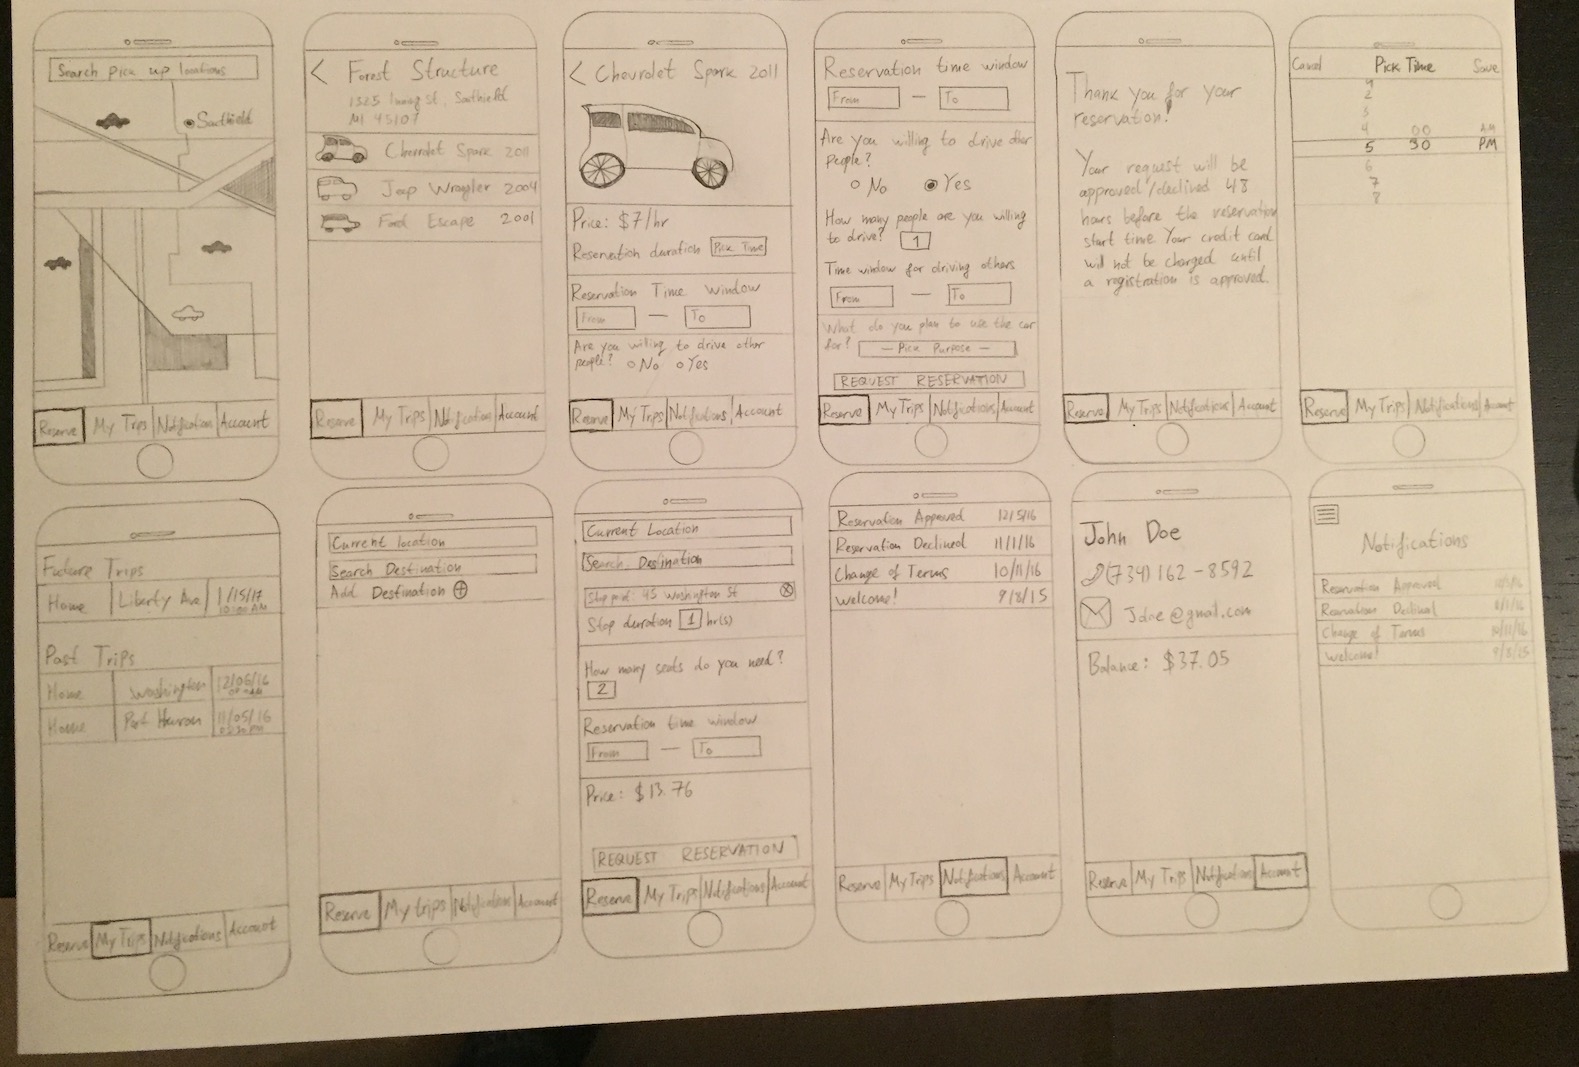 Search pick up locations
Southield
Reserve My Trips Notifications Account
< Forest Structure
1325 St, Southield
MI 45107
Chevrolet Spark 2011
Jeep Wrangler 2004
Ford Escape 2001
Reserve My Trips Notifications Account
< Chevrolet Spark 2011
Price: $7/hr
Reservation duration Pick Time
Reservation Time Window
From — To
Are you willing to drive other
people? No Yes
Reserve My Trips Notifications Account
Reservation time window
From — To
Are you willing to drive other
People?
No Yes
How many people are you willing
to drive? 1
Time window for driving others
From — To
What do you plan to use the car
for? — Pick Purpose —
REQUEST RESERVATION
Reserve My Trips Notifications Account
Thank you for your
reservation!
Your request will be
approved/declined 48
hours before the reservation
start time Your credit card
will not be charged until
a registration is approved.
Reserve My Trips Notifications Account
Cancel Pick Time Save
2
3
4 00 AM
5 30 PM
6
7
8
Reserve My Trips Notifications Account
Future Trips
Home Liberty Ave 1/15/17
10:00 AM
Past Trips
Home Washington 12/06/16
Home Port Huron 11/05/16
Reserve My Trips Notifications Account
Current location
Search Destination
Add Destination
Reserve My trips Notifications Account
Current Location
Search Destination
45 Washington St
Stop duration 1 hr(s)
How many seats do you need?
2
Reservation time window
From — To
Price: $13.76
REQUEST RESERVATION
Reserve My Trips Notifications Account
Reservation Approved 12/5/16
Reservation Declined 11/1/16
Change of Terms 10/11/16
Welcome! 9/8/15
Reserve My Trips Notifications Account
John Doe
(734) 162-8592
Jdoe@gmail.com
Balance: $37.05
Reserve My Trips Notifications Account
Notifications
Reservation Approved
Reservation Declined
Change of Terms 10/11/16
Welcome! 9/8/15